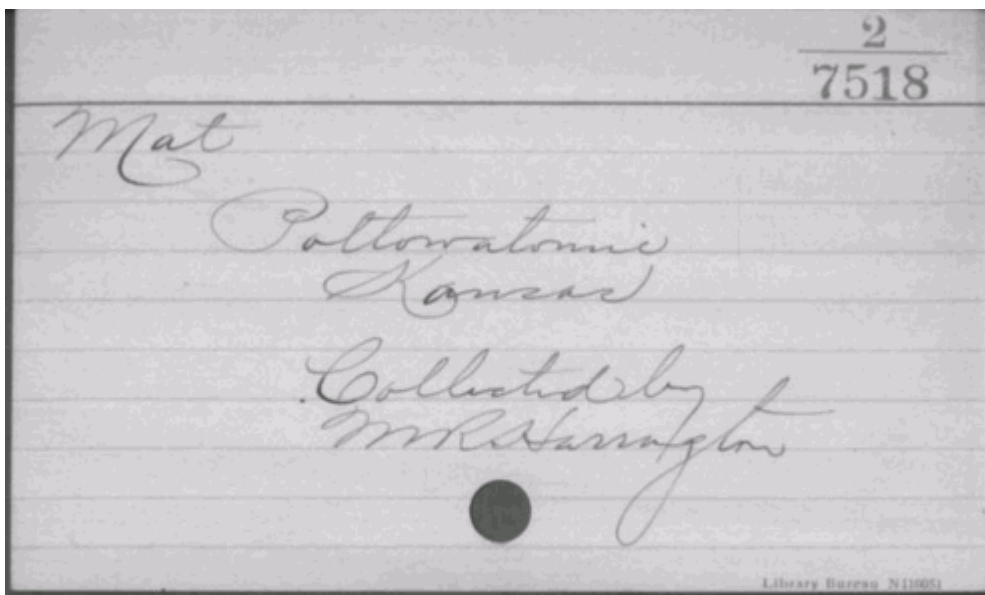 2
7518
Mat
Pottowatomie
Kansas
Collected by
M R Harrington
Library Bureau N110051